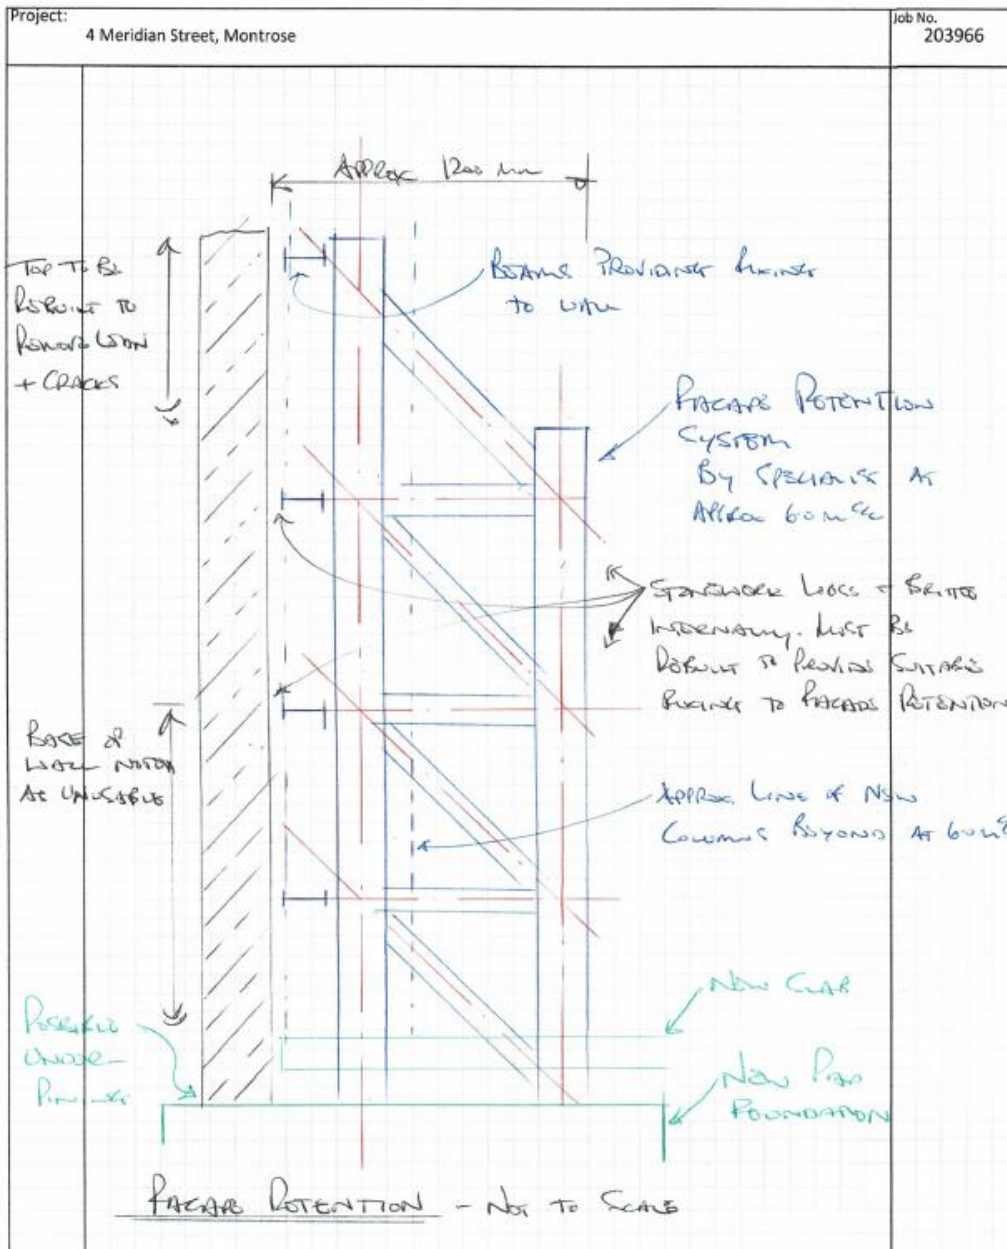 Project:
4 Meridian Street, Montrose
Job No.
203966
APPROX 1200 mm
TOP TO BE
REBUILT TO
REMOVE LEAN
+ CRACKS
BEAMS PROVIDING FIXING
TO WALL
FACADE RETENTION
SYSTEM
BY SPECIALIST AT
APPROX 6.0m c/c
STONEWORK LOOSE + BRITTLE
INTERNALLY. MUST BE
REBUILT TO PROVIDE SUITABLE
FIXING TO FACADE RETENTION
BASE OF
WALL NOTED
AS UNUSABLE
APPROX. LINE OF NEW
COLUMNS BEYOND AT 6.0m c
POSSIBLE
UNDER-
PINNING
NEW SLAB
NEW PAD
FOUNDATION
FACADE RETENTION - NOT TO SCALE